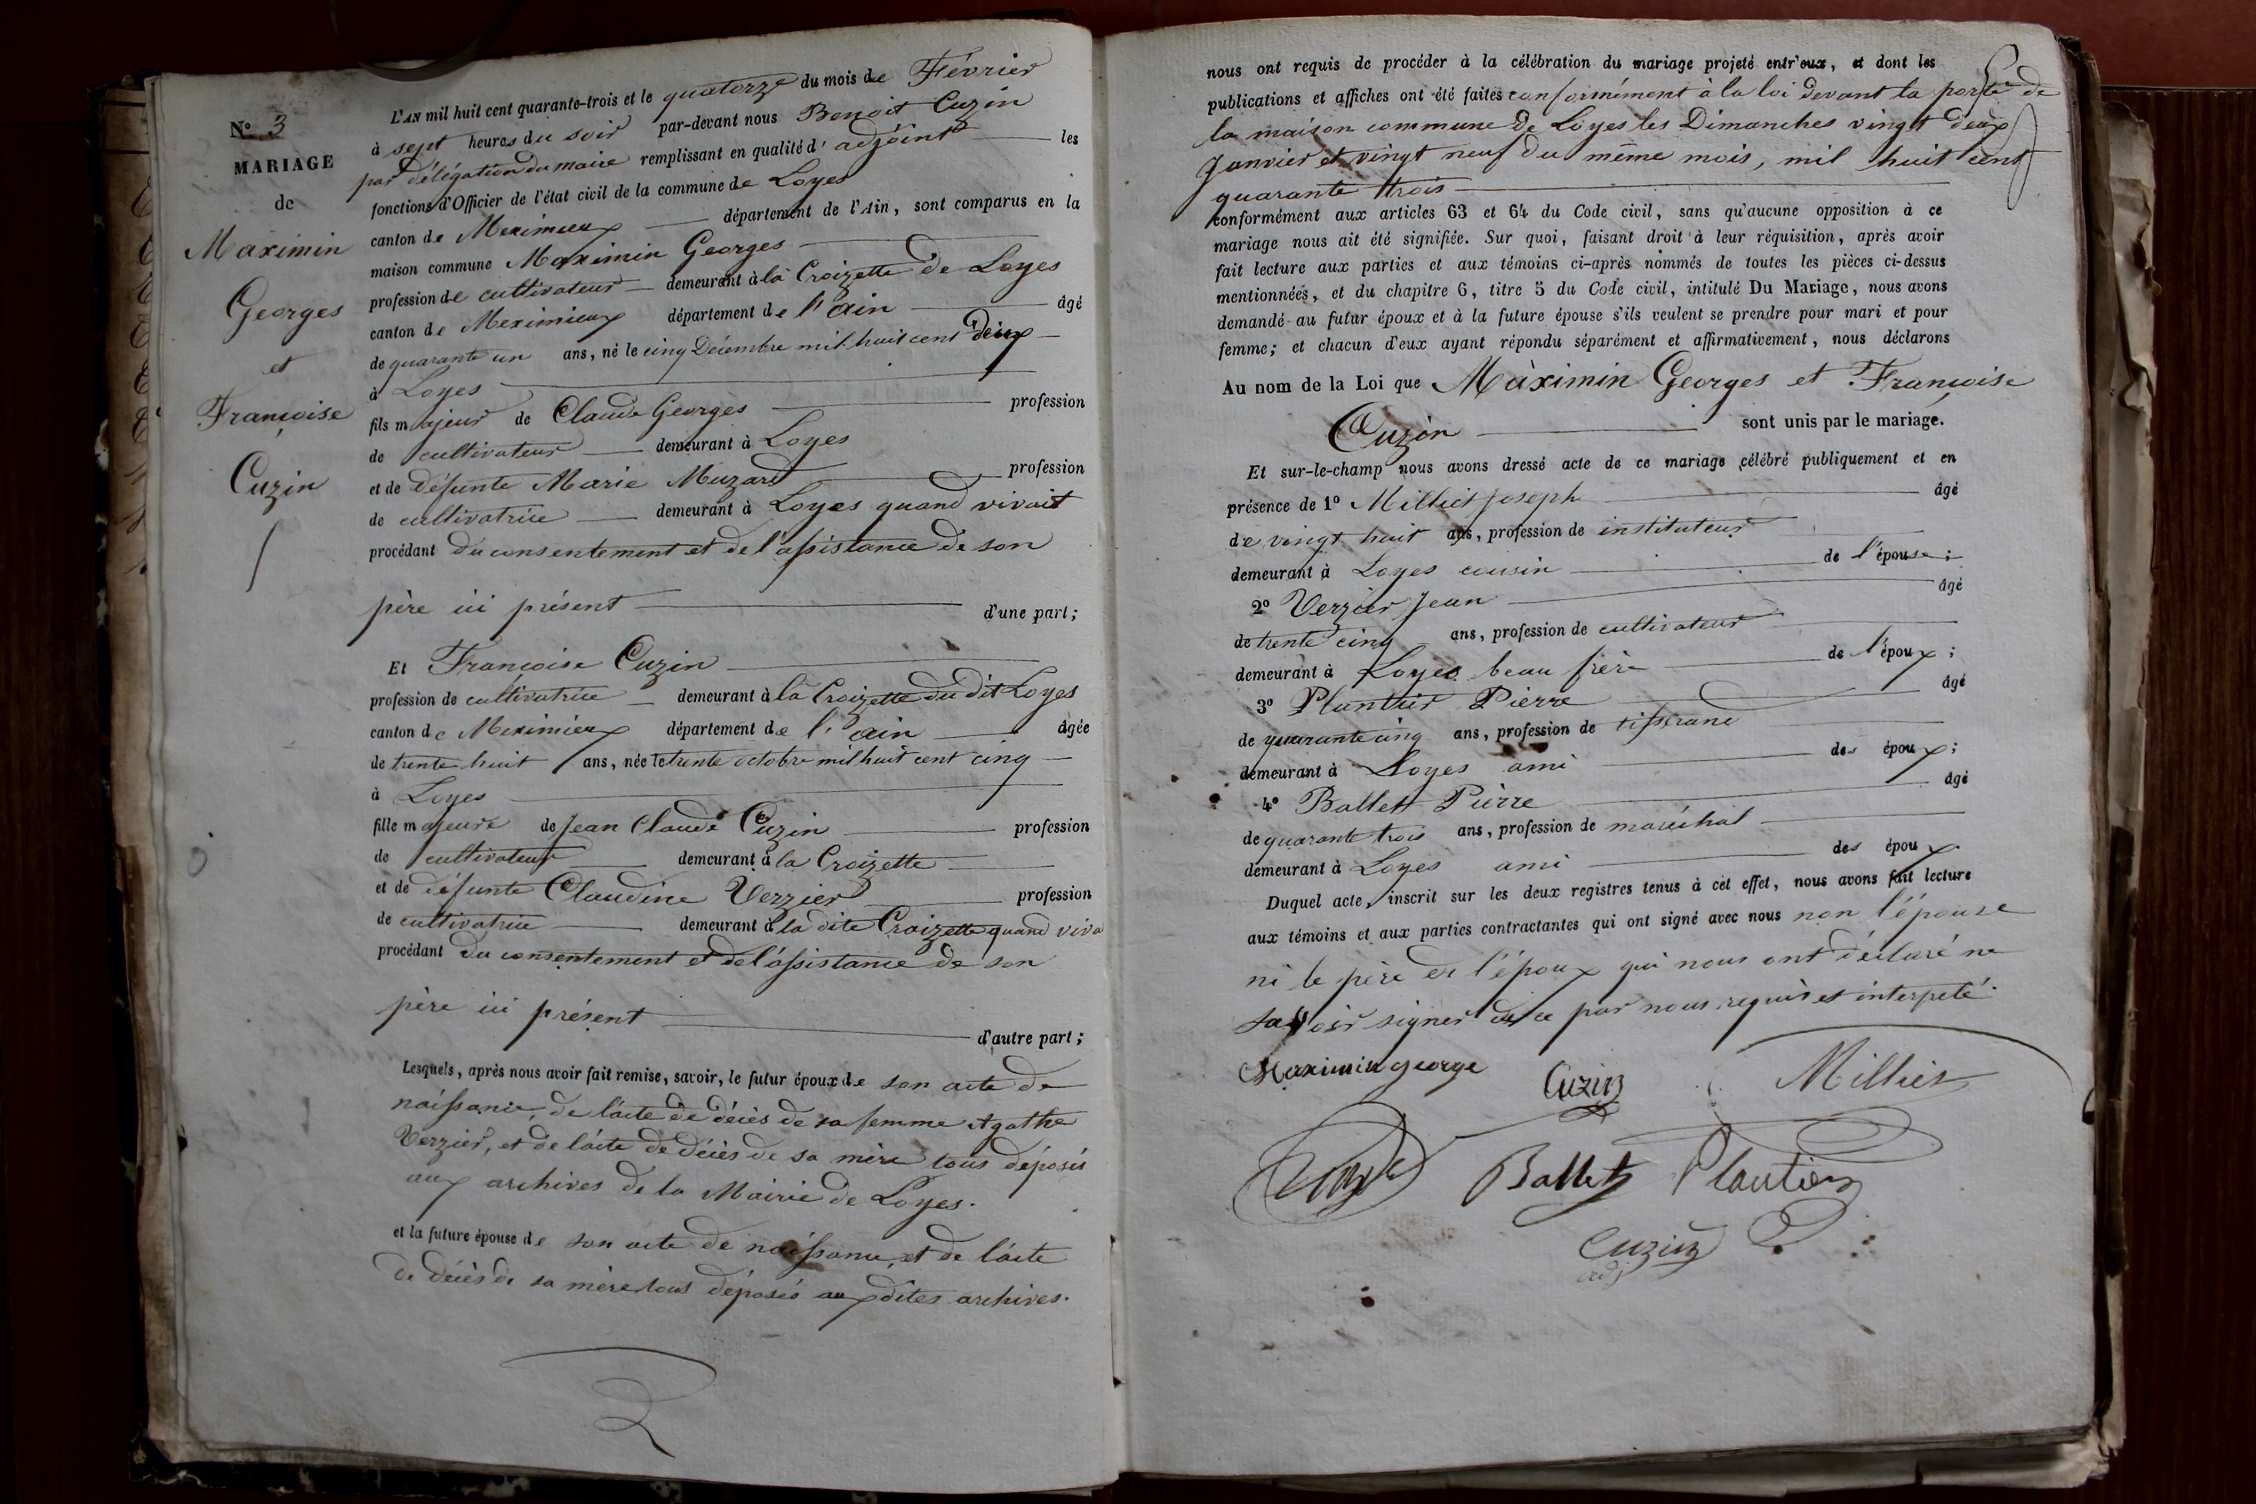 N° 3
MARIAGE
de
Maximin
Georges
et
Françoise
Cuzin
L'AN mil huit cent quarante-trois et le quatorze du mois de Février
à sept heures du soir par-devant nous Benoit Cuzin
par délégation du maire remplissant en qualité d' adjoint les
fonctions d'Officier de l'état civil de la commune de Loyes
canton de Meximieux département de l'Ain, sont comparus en la
maison commune Maximin Georges
profession de cultivateur demeurant à la Croizette de Loyes
canton de Meximieux département de l'ain âgé
de quarante un ans, né le cinq Décembre mil huit cent deux
à Loyes
fils majeur de Claude Georges profession
de cultivateur demeurant à Loyes
et de défunte Marie Muzard profession
de cultivatrice demeurant à Loyes quand vivait
procédant du consentement et de l'assistance de son
père ici présent d'une part;
Et Françoise Cuzin
profession de cultivatrice demeurant à la Croizette du dit Loyes
canton de Meximieux département de l'ain âgée
de trente huit ans, née le trente octobre mil huit cent cinq
à Loyes
fille majeure de Jean Claude Cuzin profession
de cultivateur demeurant à la Croizette
et de défunte Claudine Verzier profession
de cultivatrice demeurant à la dite Croizette quand viva
procédant du consentement et de l'assistance de son
père ici présent
d'autre part;
Lesquels, après nous avoir fait remise, savoir, le futur époux de son acte de
naissance, de l'acte de décès de sa femme Agathe
Verzier, et de l'acte de décès de sa mère tous déposés
aux archives de la Mairie de Loyes.
et la future épouse de son acte de naissance, et de l'acte
de décès de sa mère tous déposés aux dites archives.
nous ont requis de procéder à la célébration du mariage projeté entr'eux, et dont les
publications et affiches ont été faites conformément à la loi devant la porte de
la maison commune de Loyes les Dimanches vingt deux
Janvier et vingt neuf du même mois, mil huit cent
quarante trois
conformément aux articles 63 et 64 du Code civil, sans qu'aucune opposition à ce
mariage nous ait été signifiée. Sur quoi, faisant droit à leur réquisition, après avoir
fait lecture aux parties et aux témoins ci-après nommés de toutes les pièces ci-dessus
mentionnées, et du chapitre 6, titre 5 du Code civil, intitulé Du Mariage, nous avons
demandé au futur époux et à la future épouse s'ils veulent se prendre pour mari et pour
femme; et chacun d'eux ayant répondu séparément et affirmativement, nous déclarons
Au nom de la Loi que Maximin Georges et Françoise
Cuzin sont unis par le mariage.
Et sur-le-champ nous avons dressé acte de ce mariage célébré publiquement et en
présence de 1° Milliet Joseph âgé
de vingt huit ans, profession de instituteur
demeurant à Loyes cousin de l'épouse;
2° Verzier Jean âgé
de trente cinq ans, profession de cultivateur
demeurant à Loyes beau frère de l'époux;
3° Plantier Pierre âgé
de quarante cinq ans, profession de tisserand
demeurant à Loyes ami des époux;
4° Ballet Pierre âgé
de quarante trois ans, profession de maréchal
demeurant à Loyes ami des époux.
Duquel acte, inscrit sur les deux registres tenus à cet effet, nous avons fait lecture
aux témoins et aux parties contractantes qui ont signé avec nous non l'épouse
ni le père de l'époux qui nous ont déclaré ne
savoir signer de ce par nous requis et interpelé.
Maximin george Cuzin Milliet
Ballet Plantier
Cuzin
adj